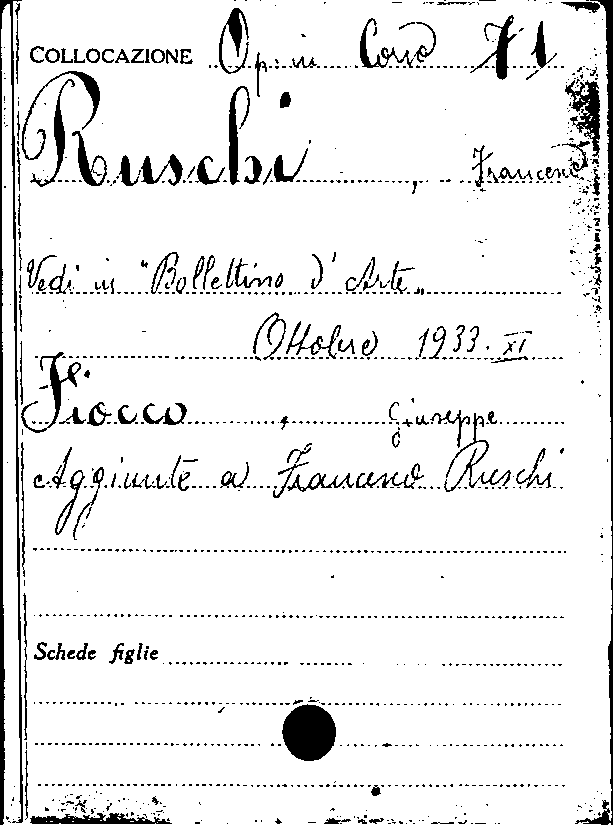 COLLOCAZIONE Op. in Corso 71
Ruschi, Francesco
Vedi in "Bollettino d'Arte"
Ottobre 1933. XI
Fiocco, Giuseppe
Aggiunte a Francesco Ruschi
Schede figlie